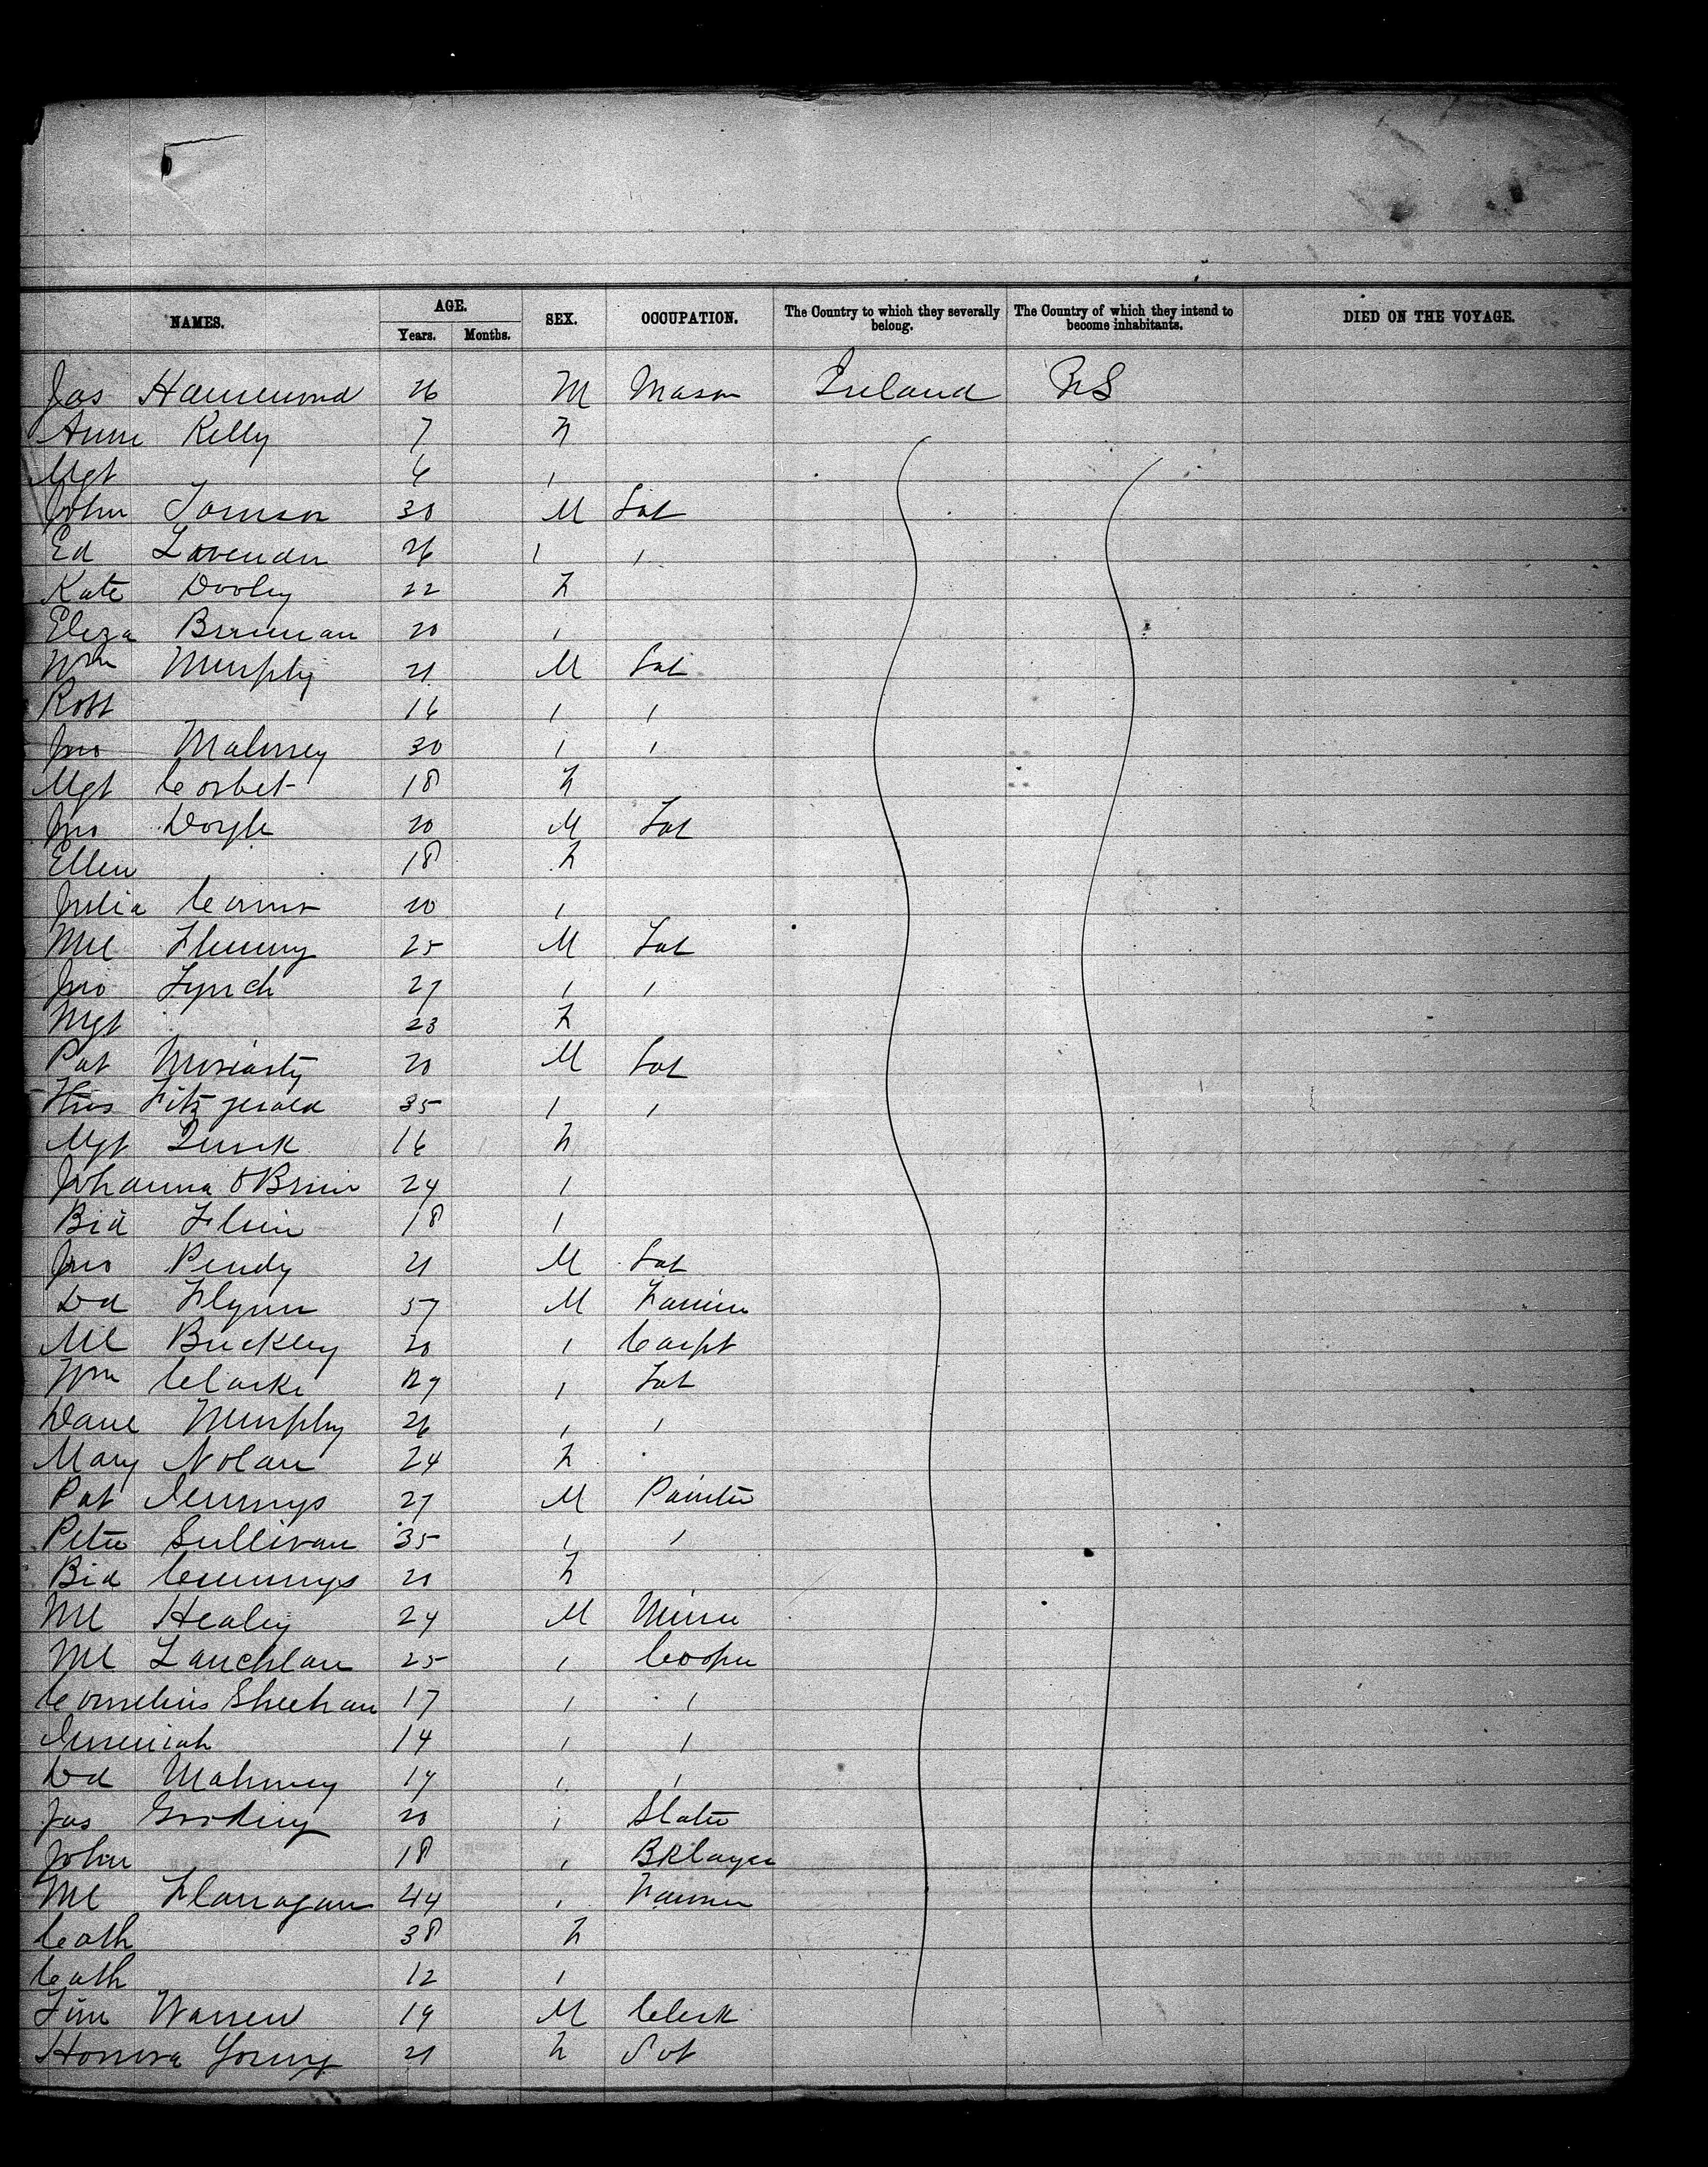 NAMES. AGE. Years. Months. SEX. OCCUPATION. The Country to which they severally belong. The Country of which they intend to become inhabitants. DIED ON THE VOYAGE.
Jas Hammond 26 M Mason Ireland US
Anne Kelly 7 F
Mgt 6 "
John 30 M Lab
Ed Lavender 26 " "
Kate Dooley 22 F
Eliza Brennan 20 "
Wm Murphy 21 M Lab
Robt 16 " "
Jno Mahoney 30 " "
Mgt Corbet 18 F
Jno Doyle 20 M Lab
Ellen 18 F
Julia Connor 20 "
Ml Fleming 25 M Lab
Jno Lynch 27 " "
Mgt 23 F
Pat Moriarty 20 M Lab
Thos Fitzgerald 35 " "
Mgt Quirk 16 F
Johanna O'Brien 24 "
Bid Flinn 18 "
Jno Pendy 21 M Lab
Dd Flynn 57 M Farmer
Ml Buckley 20 " Carpt
Wm Clarke 27 " Lab
Danl Murphy 26 " "
Mary Nolan 24 F
Pat Jennings 27 M Painter
Peter Sullivan 35 " "
Bid Cummings 20 F
Ml Healey 24 M Miner
Ml Lauchlan 25 " Cooper
Cornelius Sheehan 17 " "
Jeremiah 14 " "
Dd Mahoney 19 " "
Jas Gooding 20 " Slater
John 18 " Bklayer
Ml Flanagan 44 " Farmer
Cath 38 F
Cath 12 "
Tim Warren 19 M Clerk
Honora Young 21 F